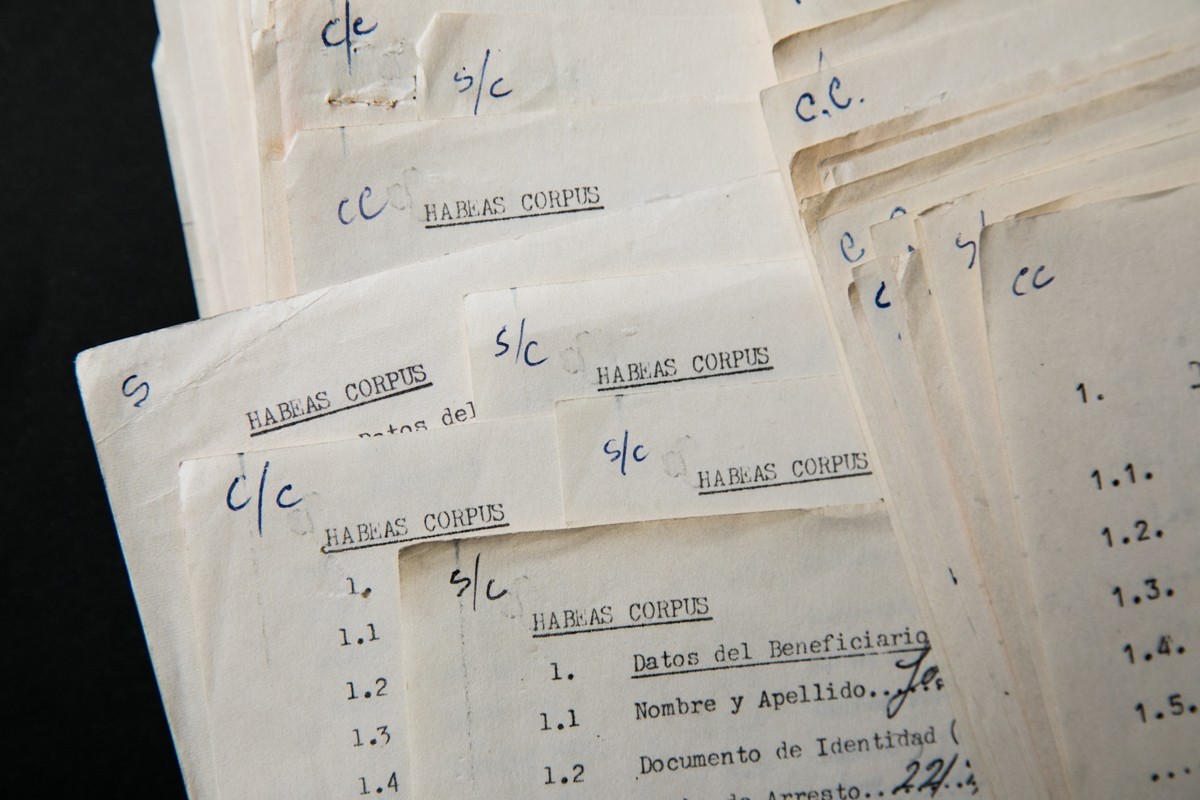 c/c
s/c
cc HABEAS CORPUS
S
HABEAS CORPUS
Datos del
s/c
HABEAS CORPUS
s/c
HABEAS CORPUS
c/c
HABEAS CORPUS
1.
1.1
1.2
1.3
1.4
s/c
HABEAS CORPUS
1. Datos del Beneficiario
1.1 Nombre y Apellido.....
1.2 Documento de Identidad (
Arresto..22/.
c.c.
c
c
s/
cc
1.
1.1.
1.2.
1.3.
1.4.
1.5.
...